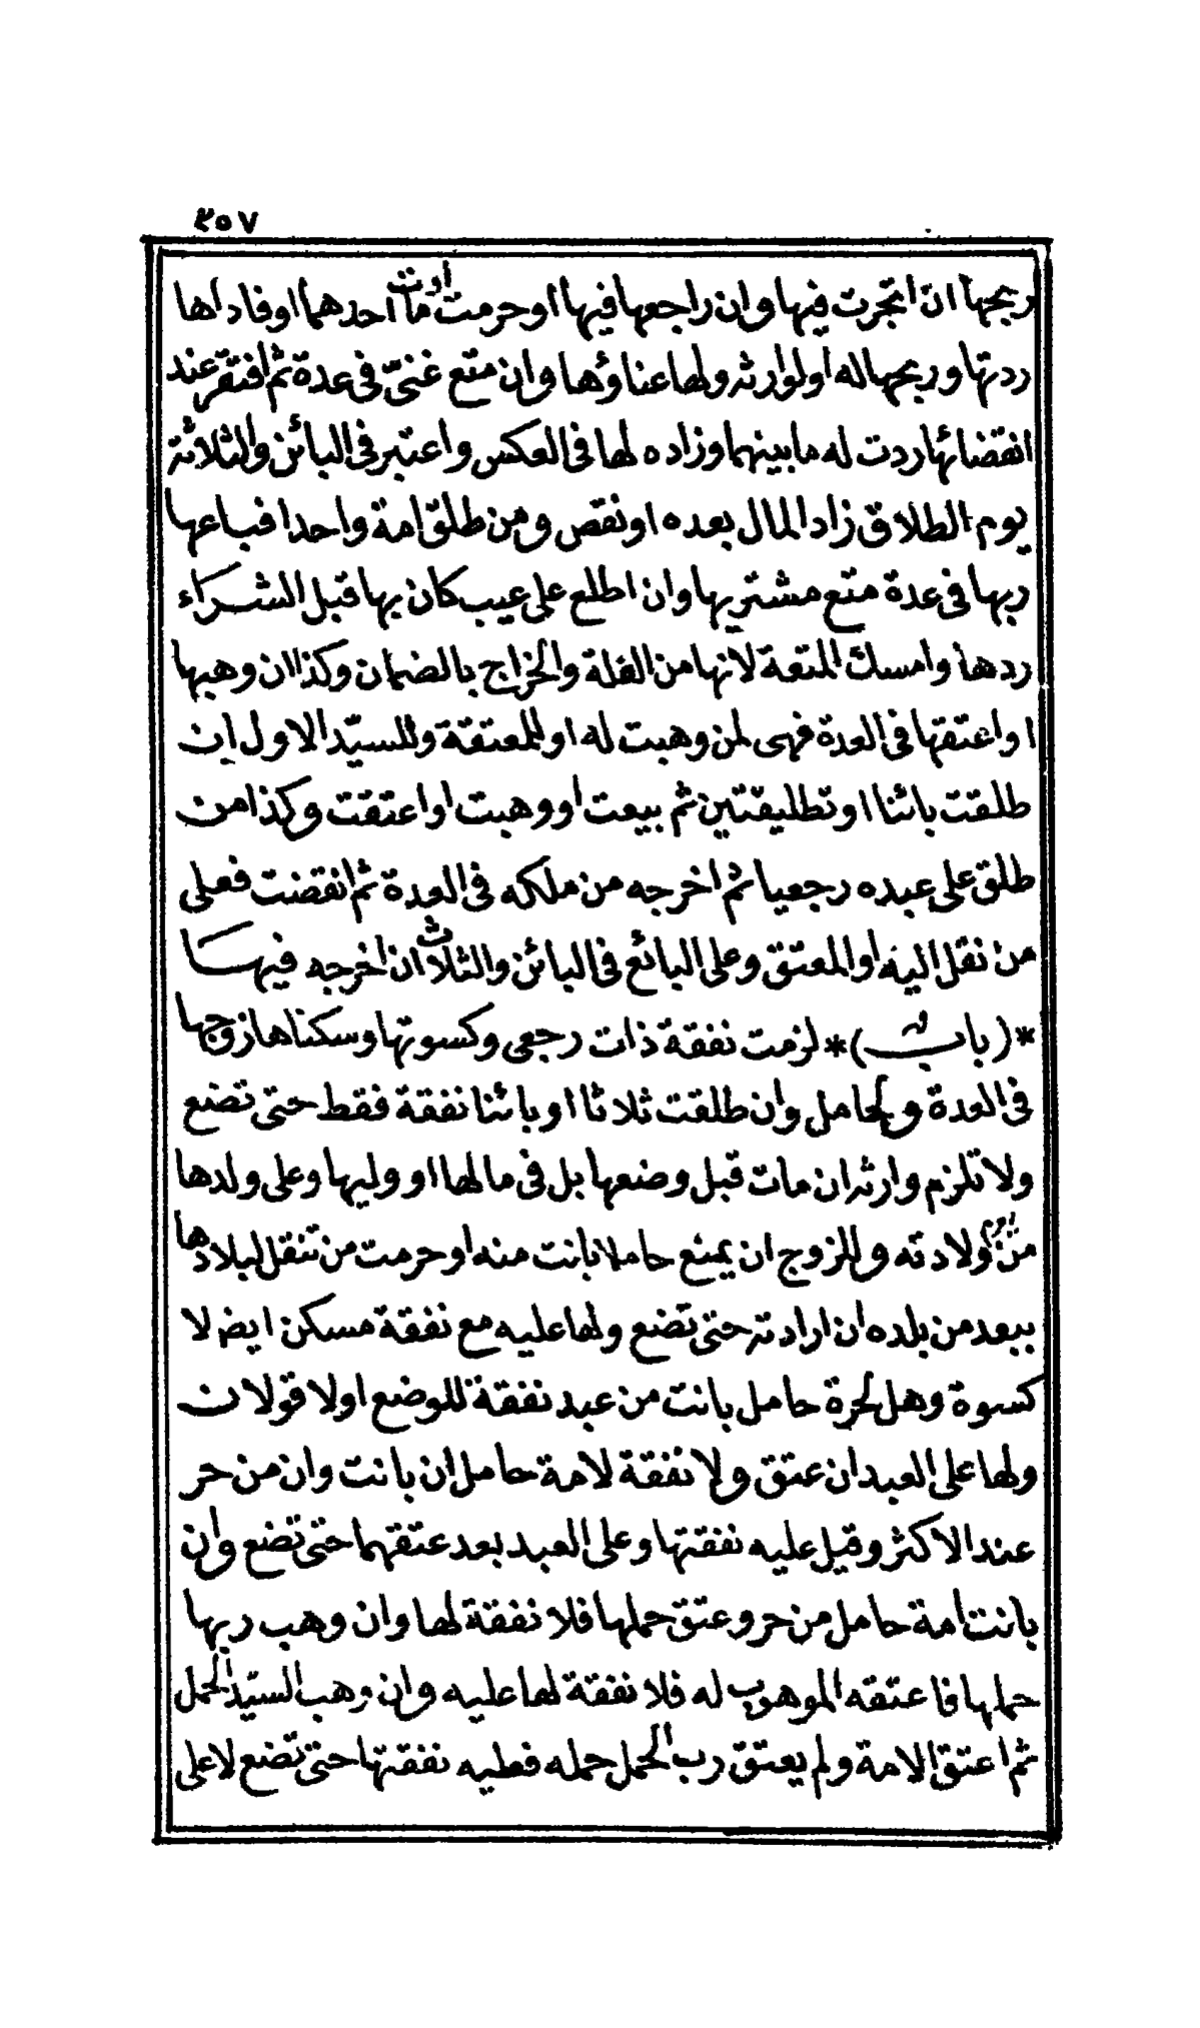 ٢٥٧
ربحها ان اتجرت فيها وان راجعها فيها او حرمت او مات احدهما او فاداها
ردتها وربحها له او لوارثه ولها عناؤها وان متع غنىّ فى عدة ثم افتقر عند
انقضائها ردت له ما بينهما وزاده لها فى العكس واعتبر فى البائن والثلاثة
يوم الطلاق زاد المال بعده او نقص ومن طلق امة واحدا فباعها
ربها فى عدة متع مشتريها وان اطلع على عيب كان بها قبل الشراء
ردها وامسك المتعة لانها من الغلة والخراج بالضمان وكذا ان وهبها
او اعتقها فى العدة فهى لمن وهبت له او للمعتقة وللسيّد الاول ان
طلقت بائنا او تطليقتين ثم بيعت او وهبت او اعتقت وكذا من
طلق على عبده رجعيا ثم اخرجه من ملكه فى العدة ثم انقضت فعلى
من نقل اليه او المعتق وعلى البائع فى البائن والثلاث ان اخرجه فيها
*(باب)* لزمت نفقة ذات رجعى وكسوتها وسكناها زوجها
فى العدة ولحامل وان طلقت ثلاثا او بائنا نفقة فقط حتى تضع
ولا تلزم وارثه ان مات قبل وضعها بل فى مالها او وليها وعلى ولدها
من يوم ولادته وللزوج ان يمنع حاملا بانت منه او حرمت من تنقل لبلادها
ببعد من بلده ان ارادته حتى تضع ولها عليه مع نفقة مسكن ايضا لا
كسوة وهل لحرة حامل بانت من عبد نفقة للوضع اولا قولان
ولها على العبد ان عتق ولا نفقة لامة حامل ان بانت وان من حر
عند الاكثر وقيل عليه نفقتها وعلى العبد بعد عتقهما حتى تضع وان
بانت امة حامل من حر وعتق حملها فلا نفقة لها وان وهب ربها
حملها فاعتقه الموهوب له فلا نفقة لها عليه وان وهب السيّد الحمل
ثم اعتق الامة ولم يعتق رب الحمل حمله فعليه نفقتها حتى تضع لا على